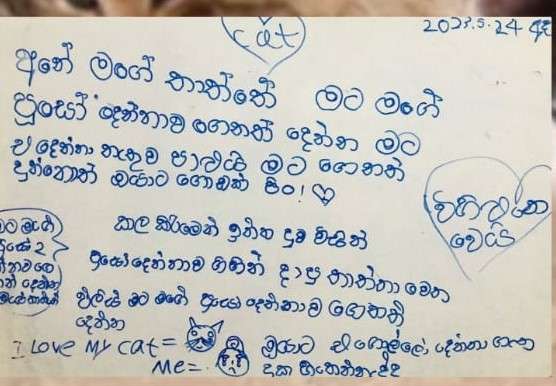 cat
2023.5.24 අද
අනේ මගේ තාත්තේ මට මගේ
පූසෝ දෙන්නාව ගෙනත් දෙන්න මට
ඒ දෙන්නා නැතුව පාළුයි මට ගෙනත්
දුන්නොත් ඔයාට ගොඩක් පිං!
කල කිරිමෙන් ඉන්න දුව විසින්
පූසෝ දෙන්නාව ගිහින් දාපු තාත්තා වෙත
ප්ලීස් මට මගේ පූසෝ දෙන්නාව ගෙනත්
දෙන්න
I Love My cat =
Me =
ඔයාට ඒ ගොල්ලෝ දෙන්නා ගැන
දුක හිතෙන්නැද්ද
වෙයි
මට මගේ
පූසෝ 2